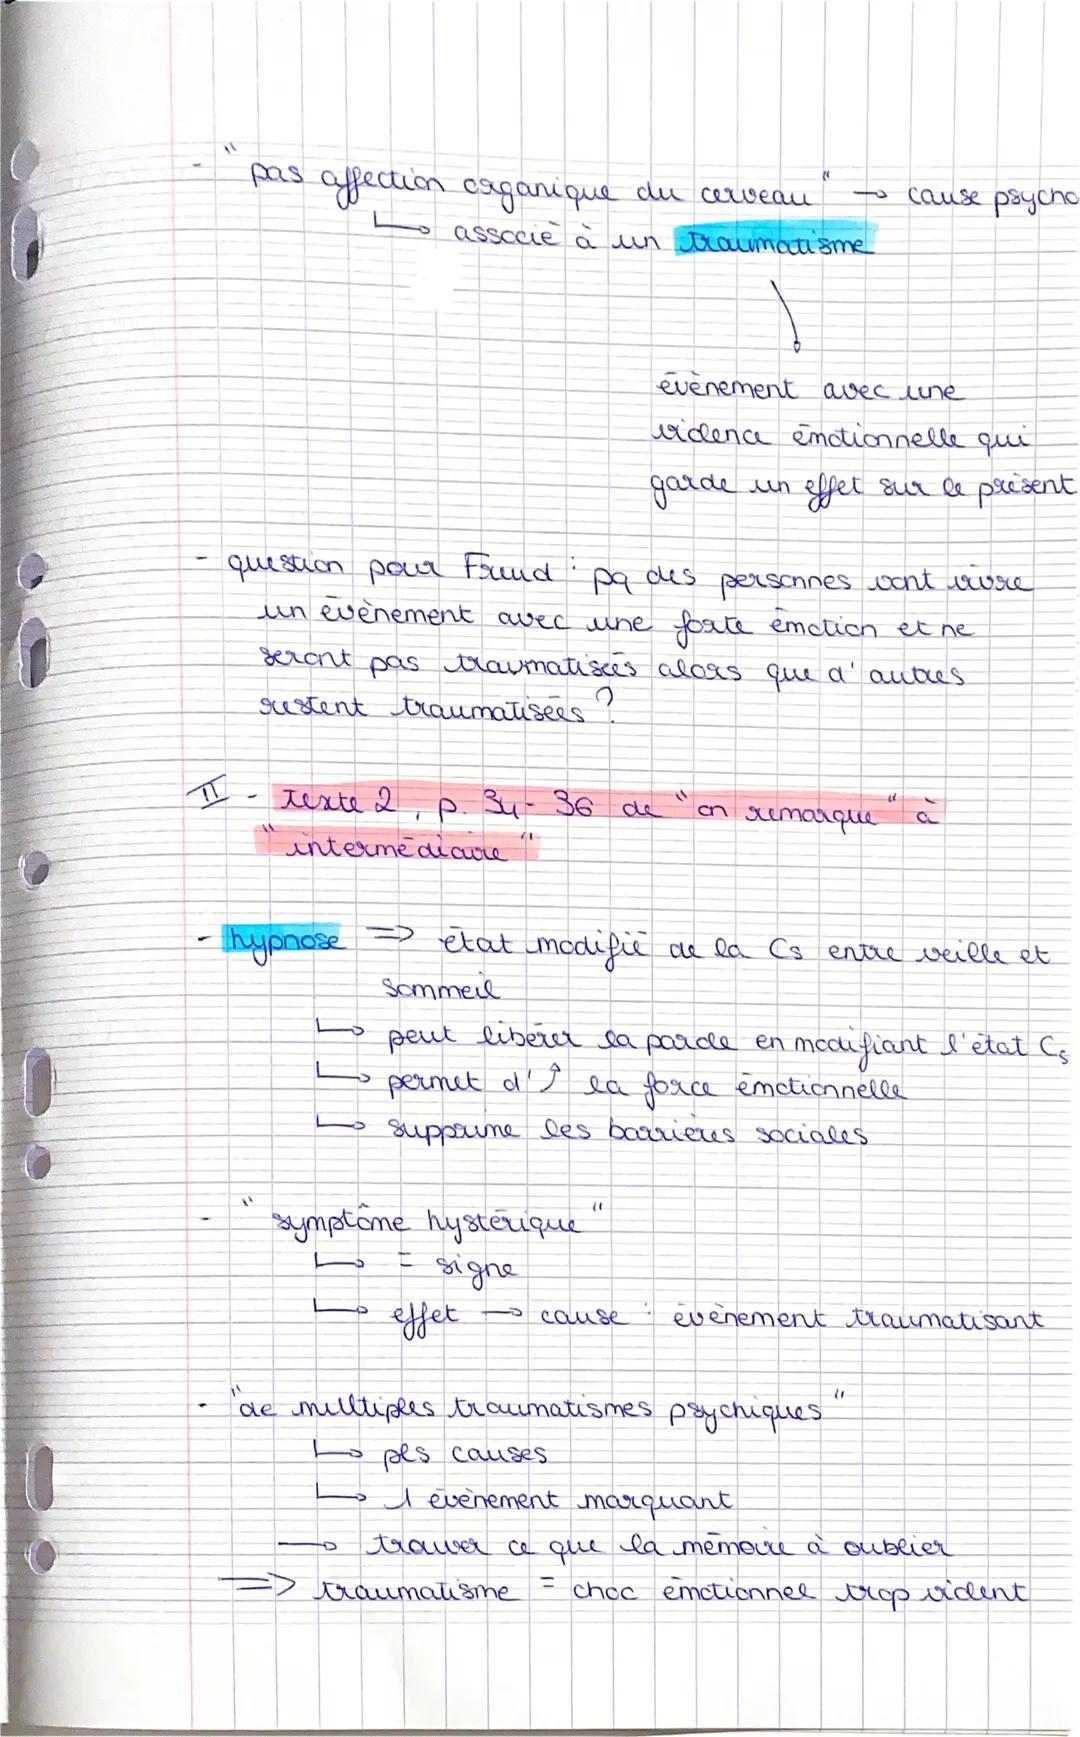 - "pas affection organique du cerveau" → cause psycho
↳ associé à un traumatisme
évènement avec une
violence émotionnelle qui
garde un effet sur le présent
- question pour Freud : pq des personnes vont vivre
un évènement avec une forte émotion et ne
seront pas traumatisées alors que d'autres
restent traumatisées ?
II - Texte 2, p. 34-36 de "on remarque" à
"intermédiaire"
- hypnose => état modifié de la Cs entre veille et
sommeil
↳ peut libérer la parole en modifiant l'état Cs
↳ permet d'↗ la force émotionnelle
↳ supprime les barrières sociales
- "symptôme hystérique"
↳ = signe
↳ effet → cause : évènement traumatisant
- "de multiples traumatismes psychiques"
↳ pls causes
↳ 1 évènement marquant
→ trouver ce que la mémoire à oublier
=> traumatisme = choc émotionnel trop violent